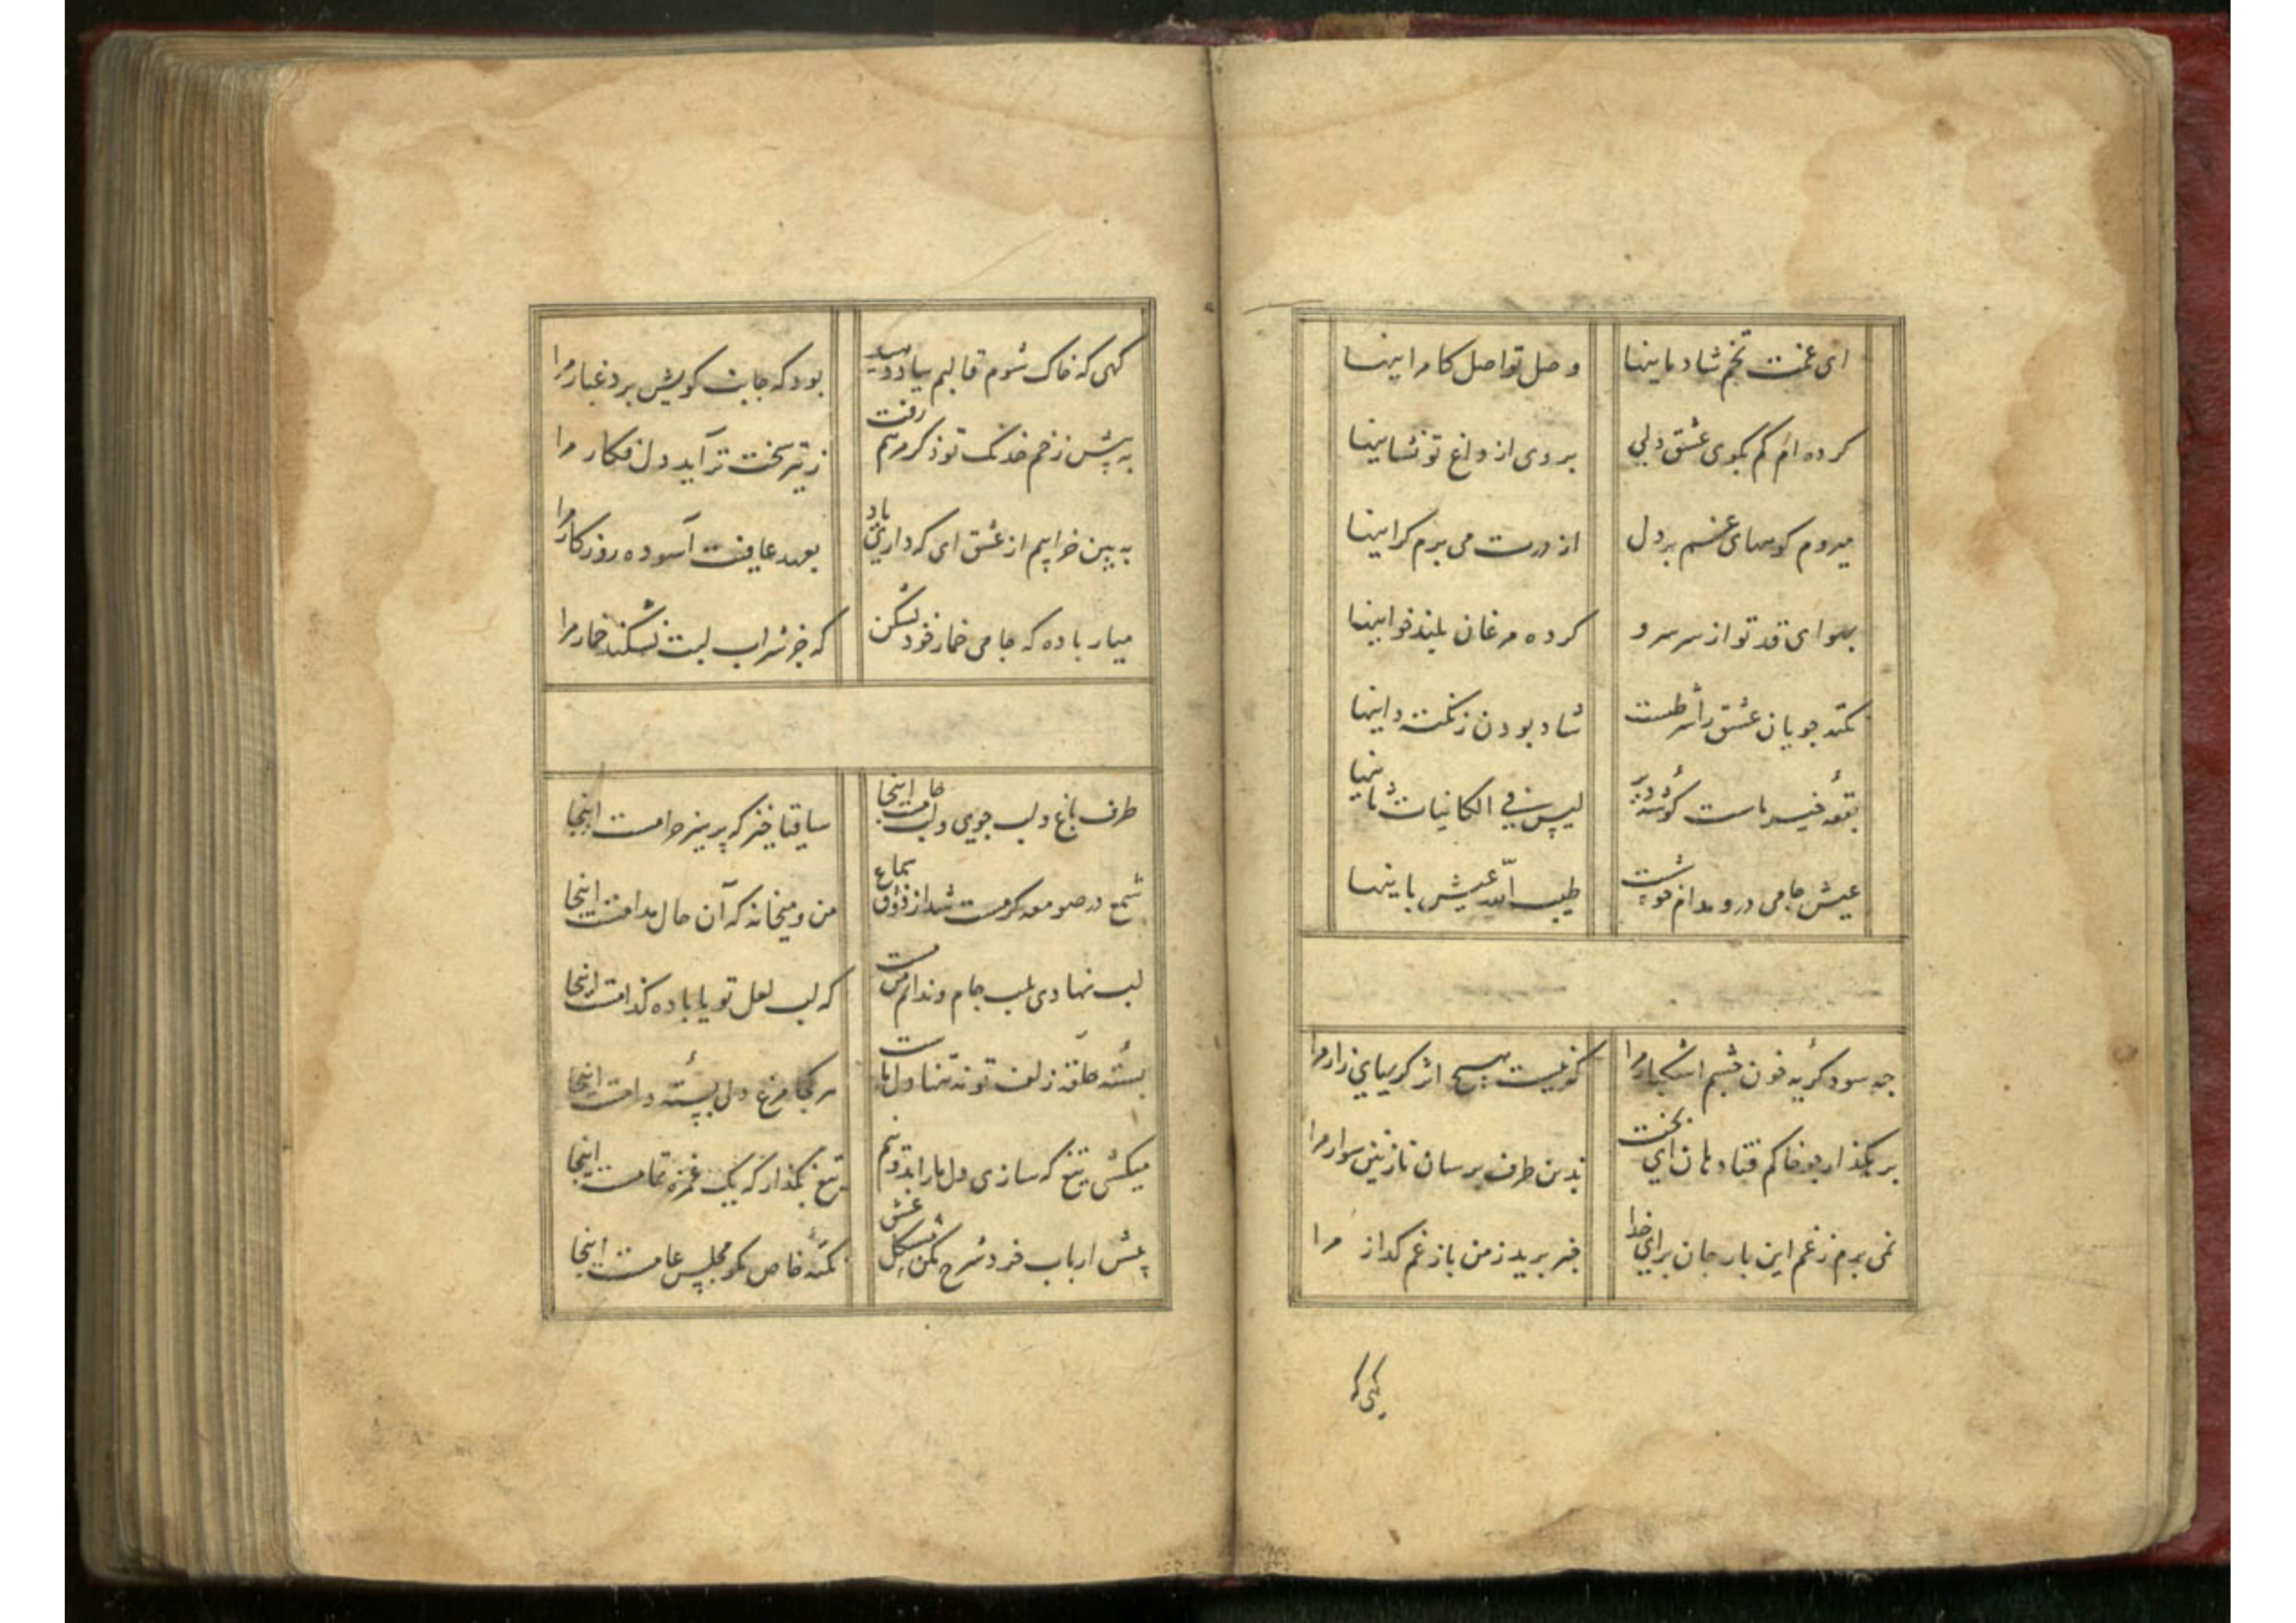 ای غمت تخم شادمانیها وصل تو اصل کامرانیها
کرده ام گم بکوی عشق دلی بر وی از داغ تو نشانیها
میروم کوههای غم بر دل از درت می برم گرانیها
بهوای قد تو از سر سرو کرده مرغان بلند خوانیها
نکته جویان عشق را شرطست شاد بودن ز نکته دانیها
بقعهٔ خیر ماست گوشهٔ دیر لیس فی الکائنات ثانیها
عیش جامی درو مدام خوشست طیب الله عیش بانیها
چه سود گریهٔ خون چشم اشکبار مرا که نیست هیچ اثر گریهای زار مرا
برهگذار چو خاکم فتاده مان ای بخت بدین طرف برسان نازنین سوار مرا
نمی برم ز غم این بار جان برای خدا خبر برید ز من یار غمگذار مرا
گهی که
گهی که خاک شوم قالبم بباد دهید بود که جانب کویش برد غبار مرا
به پیش زخم خدنگ تو ذکر مرهم رفت ز تیر سخت تر آید دل فکار مرا
به بین خرابیم از عشق ای که داری یاد بعهد عافیت آسوده روزگار مرا
میار باده که جامی خمار خود بشکن که جز شراب لبت نشکند خمار مرا
طرف باغ و لب جوی و لب جامست اینجا ساقیا خیز که پرهیز حرامست اینجا
شیخ در صومعه گر مست شد از ذوق سماع من و میخانه که آن حال مدامست اینجا
لب نهادی بلب جام و ندانم من مست که لب لعل تو یا باده کدامست اینجا
بستهٔ حلقهٔ زلف تو نه تنها دل ماست هر کجا مرغ دلی بستهٔ دامست اینجا
میکشی تیغ که سازی دل ما را بدو نیم تیغ بگذار که یک غمزه تمامست اینجا
پیش ارباب خرد شرح مکن مشکل عشق نکتهٔ خاص مگو مجلس عامست اینجا